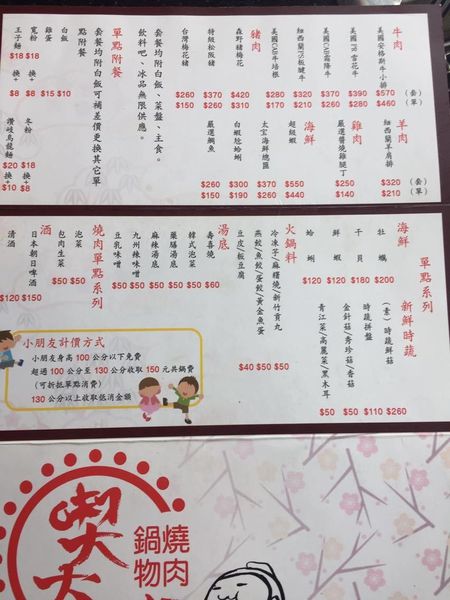 牛肉
美國安格斯牛小排 $570 (套) $460 (單)
美國PR雪花牛 $390 $280
美國CAB霜降牛 $370 $260
紐西蘭PS板腱牛 $320 $210
美國CAB牛培根 $280 $170
豬肉
森野豬梅花 $420 $310
特級松阪豬 $370 $260
台灣梅花豬 $260 $150
套餐均附白飯、菜盤、主食。
飲料吧、冰品無限供應。
單點附餐
套餐均附白飯可補差價更換其它單
點附餐
白飯 $10
雞蛋 $15
寬粉 $18 換+ $8
王子麵 $18 換+ $8
冬粉 $18 換+ $8
讚岐烏龍麵 $20 換+ $10
羊肉
紐西蘭羊肩排 $320 (套) $210 (單)
雞肉
嚴選醬燒雞腿丁 $250 $140
海鮮
超級蝦 $550 $440
太宝海鮮總匯 $370 $260
白蝦尬蛤蜊 $300 $190
嚴選鯛魚 $260 $150
單點系列
海鮮
牡蠣 $200
干貝 $180
鮮蝦 $120
蛤蜊 $120
新鮮時蔬
(素)時蔬鮮菇 $260
時蔬拼盤 $110
金針菇/秀珍菇/香菇 $50
青江菜/高麗菜/黑木耳 $50
火鍋料
冷凍芋/麻糬燒/新竹貢丸 $50
燕餃/魚餃/蛋餃/黃金魚蛋 $50
豆皮/板豆腐 $40
湯底
壽喜燒 $60
韓式泡菜 $60
藥膳湯底 $60
麻辣湯底 $60
九州辣味噌 $60
豆乳味噌 $60
燒肉單點系列
泡菜 $50
包肉生菜 $50
酒
日本朝日啤酒 $150
清酒 $120
小朋友計價方式
小朋友身高 100 公分以下免費
超過 100 公分至 130 公分收取 150 元共鍋費
(可折抵單點消費)
130 公分以上收取低消金額
燒肉
鍋物